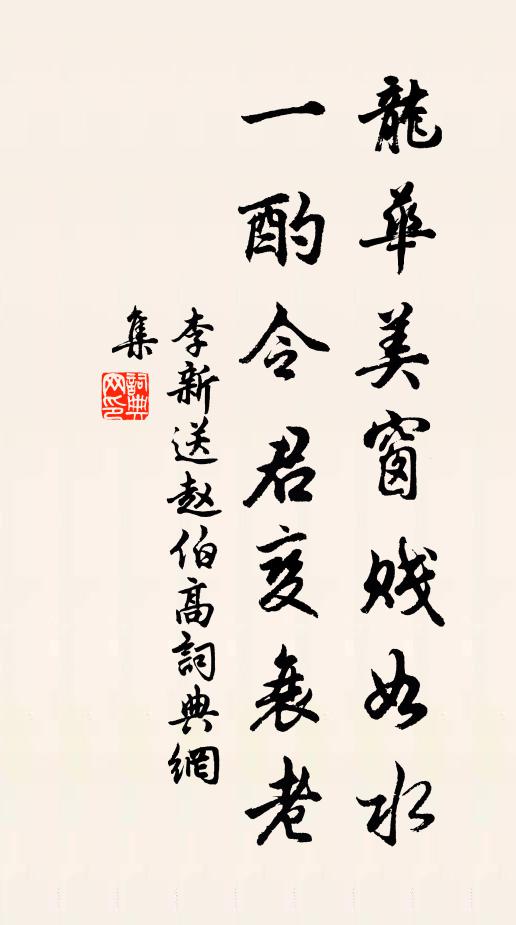 龍華美窗賤如水
一酌令君變衰老
李新送赵伯高詞典網
集
詞典
网印